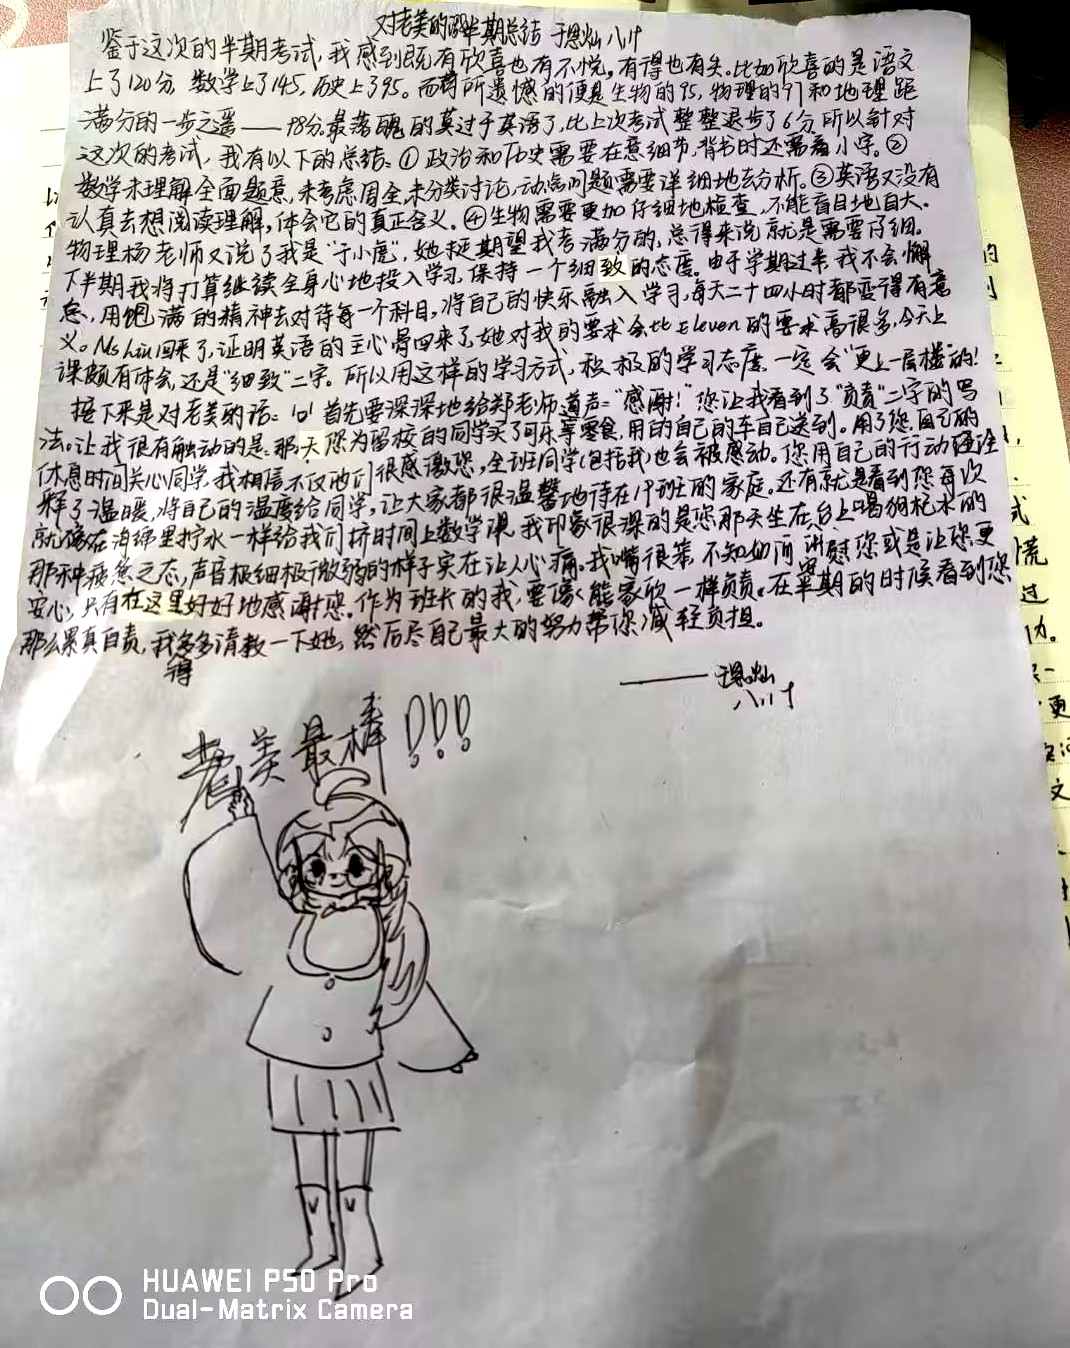 对老美的话半期总结 于恩灿 八11
鉴于这次的半期考试，我感到既有欣喜也有不悦，有得也有失。比如欣喜的是语文
上了120分，数学上了145，历史上了95。而所遗憾的便是生物的95，物理的91和地理距
满分的一步之遥——98分，最落魄的莫过于英语了，比上次考试整整退步了6分，所以针对
这次的考试，我有以下的总结：①政治和历史需要在意细节，背书时还需看小字。②
数学未理解全面题意，未考虑周全，未分类讨论，动点问题需要详细地去分析。③英语又没有
认真去想阅读理解，体会它的真正含义。④生物需要更加仔细地检查，不能盲目地自大。
物理杨老师又说了我是“于小虎”，她挺期望我考满分的，总得来说就是需要仔细。
下半期我将打算继续全身心地投入学习，保持一个细致的态度。由于学期过半，我不会懈
怠，用饱满的精神去对待每一个科目，将自己的快乐融入学习，每天二十四小时都变得有意
义。Ms Liu回来了，证明英语的主心骨回来了，她对我的要求会比Eleven的要求高很多，今天上
课颇有体会，还是“细致”二字。所以用这样的学习方式，积极的学习态度，一定会“更上一层楼”的！
接下来是对老美的话：首先要深深地给郑老师道声：“感谢！”您让我看到了“负责”二字的写
法。让我很有触动的是，那天您为留校的同学买了可乐等零食，用的自己的车自己送到。用了您自己的
休息时间关心同学，我相信不仅他们很感激您，全班同学(包括我)也会被感动。您用自己的行动诠
释了温暖，将自己的温度给同学，让大家都很温馨地待在19班的家庭。还有就是看到您每次
就像在海绵里拧水一样给我们挤时间上数学课，我印象很深的是您那天坐在台上喝枸杞水的
那种疲惫之态，声音极细极微弱的样子实在让人心痛。我嘴很笨，不知如何慰您或是让您更
安心，只有在这里好好地感谢您。作为班长的我，要像熊家欣一样负责。在半期的时候看到您
那么累真自责，我多多请教一下她，然后尽自己最大的努力帮您减轻负担。
得
——于恩灿
八11
老美最棒！！！
HUAWEI P50 Pro
Dual-Matrix Camera